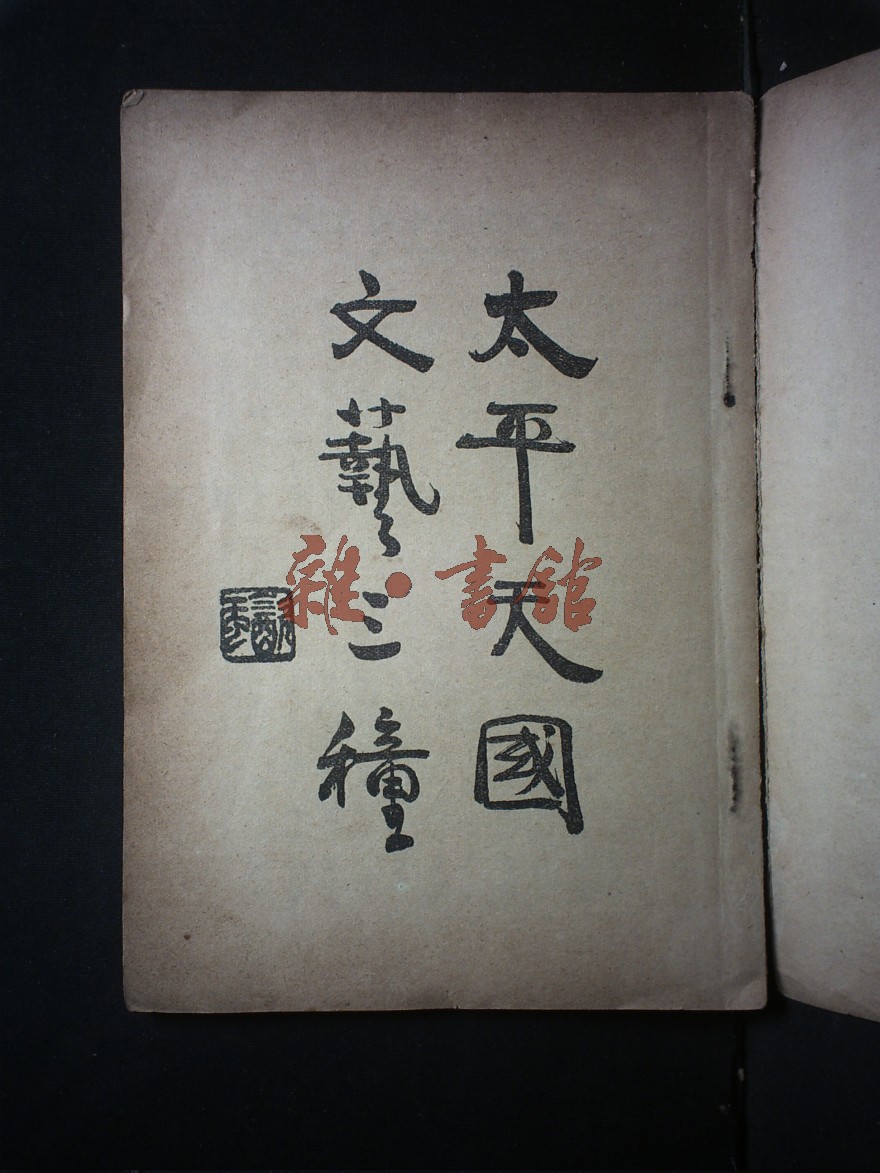 太平天國
文藝三種
雜·書館